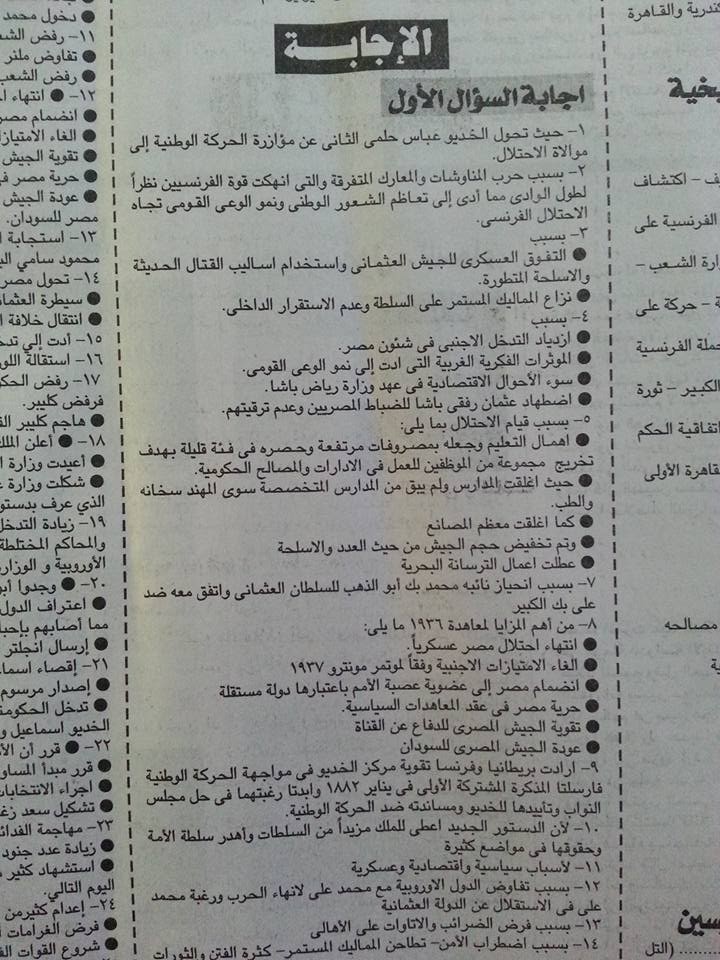 الإجابة
اجابة السؤال الأول
١- حيث تحول الخديو عباس حلمى الثانى عن مؤازرة الحركة الوطنية إلى
موالاة الاحتلال.
٢- بسبب حرب المناوشات والمعارك المتفرقة والتى انهكت قوة الفرنسيين نظراً
لطول الوادى مما أدى إلى تعاظم الشعور الوطنى ونمو الوعى القومى تجاه
الاحتلال الفرنسى.
٣- بسبب
● التفوق العسكرى للجيش العثمانى واستخدام اساليب القتال الحديثة
والاسلحة المتطورة.
● نزاع المماليك المستمر على السلطة وعدم الاستقرار الداخلى.
٤- بسبب
● ازدياد التدخل الاجنبى فى شئون مصر.
● الموثرات الفكرية الغربية التى ادت إلى نمو الوعى القومى.
● سوء الأحوال الاقتصادية فى عهد وزارة رياض باشا.
● اضطهاد عثمان رفقى باشا للضباط المصريين وعدم ترقيتهم.
٥- بسبب قيام الاحتلال بما يلى:
● اهمال التعليم وجعله بمصروفات مرتفعة وحصره فى فئة قليلة بهدف
تخريج مجموعة من الموظفين للعمل فى الادارات والمصالح الحكومية.
● حيث اغلقت المدارس ولم يبق من المدارس المتخصصة سوى المهند سخانه
والطب.
● كما اغلقت معظم المصانع
● وتم تخفيض حجم الجيش من حيث العدد والاسلحة
● عطلت اعمال الترسانة البحرية
٧- بسبب انحياز نائبه محمد بك أبو الذهب للسلطان العثمانى واتفق معه ضد
على بك الكبير
٨- من أهم المزايا لمعاهدة ١٩٣٦ ما يلى:
● انتهاء احتلال مصر عسكرياً.
● الغاء الامتيازات الاجنبية وفقاً لموتمر مونترو ١٩٣٧
● انضمام مصر إلى عضوية عصبة الأمم باعتبارها دولة مستقلة
● حرية مصر فى عقد المعاهدات السياسية.
● تقوية الجيش المصرى للدفاع عن القناة
● عودة الجيش المصرى للسودان
٩- ارادت بريطانيا وفرنسا تقوية مركز الخديو فى مواجهة الحركة الوطنية
فارسلتا المذكرة المشتركة الأولى فى يناير ١٨٨٢ وابدتا رغبتهما فى حل مجلس
النواب وتأييدها للخديو ومساندته ضد الحركة الوطنية.
١٠- لأن الدستور الجديد اعطى للملك مزيداً من السلطات وأهدر سلطة الأمة
وحقوقها فى مواضع كثيرة
١١- لأسباب سياسية واقتصادية وعسكرية
١٢- بسبب تفاوض الدول الاوروبية مع محمد على لانهاء الحرب ورغبة محمد
على فى الاستقلال عن الدولة العثمانية
١٣- بسبب فرض الضرائب والاتاوات على الأهالى
١٤- بسبب اضطراب الأمن- تطاحن المماليك المستمر- كثرة الفتن والثورات
● دخول محمد
١١- رفض الشع
● تفاوض ملنر
● رفض الشعب
١٢- ● انتهاء ا
● انضمام مصر
● الغاء الامتياز
● تقوية الجيش
● حرية مصر فى
● عودة الجيش
مصر للسودان.
١٣- استجابة ا
محمود سامي الب
١٤- تحول مصر
● سيطرة العثما
● انتقال خلافة ا
١٥- أدت إلي تدخ
١٦- استقالة اللو
١٧- رفض الحكو
فرفض كليبر.
● هاجم كليبر الق
١٨- ● أعلن الملك
● أعيدت وزارة ا
● شكلت وزارة ع
الذي عرف بدستو
١٩- زيادة التدخل
والمحاكم المختلطة
الأوروبية و الوزار
٢٠- ● وجدوا أبر
● اعتراف الدول
مما أصابهم بإحبا
● إرسال انجلتر
٢١- إقصاء اسما
● إصدار مرسوم
● تدخل الحكومة
الخديو اسماعيل و
٢٢- ● قرر أن الأ
● قرر مبدأ المساو
● اجراء الانتخابات
● تشكيل سعد زغ
٢٣- مهاجمة الفدائ
● زيادة عدد جنود
● استشهاد كثير م
اليوم التالي.
٢٤- إعدام كثيرمن
● فرض الغرامات أ
● شروع القوات الف
كندرية والقاهرة
يخية
ف - اكتشاف
الفرنسية على
ارة الشعب -
ة - حركة على
حملة الفرنسية
الكبير - ثورة
اتفاقية الحكم
قاهرة الأولى
مصالحه
ية
سين
(التل